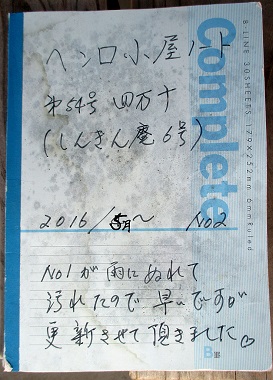 ヘンロ小屋ノート
第54号 四万十
(しんきん庵6号)
2016/5月〜 No2
No1が雨にぬれて
汚れたので早いですが
更新させて頂きました♡
Complete
8 LINE 30SHEETS 179×252mm 6mm Ruled
B